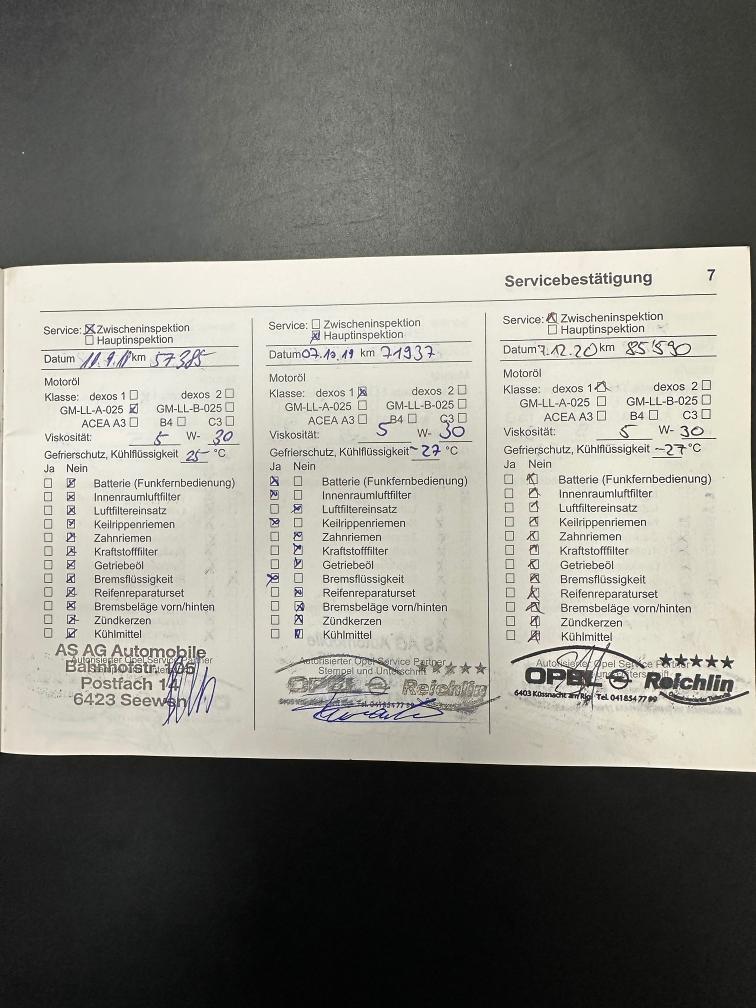 Servicebestätigung 7
Service: Zwischeninspektion
Hauptinspektion
Datum 11.9.18 km 57385
Motoröl
Klasse: dexos 1 dexos 2
GM-LL-A-025 GM-LL-B-025
ACEA A3 B4 C3
Viskosität: 5 W- 30
Gefrierschutz, Kühlflüssigkeit 25- °C
Ja Nein
Batterie (Funkfernbedienung)
Innenraumluftfilter
Luftfiltereinsatz
Keilrippenriemen
Zahnriemen
Kraftstofffilter
Getriebeöl
Bremsflüssigkeit
Reifenreparaturset
Bremsbeläge vorn/hinten
Zündkerzen
Kühlmittel
AS AG Automobile
Autorisierter Opel Service Partner
Bahnhofstr. 105
Postfach 14
6423 Seewen
Service: Zwischeninspektion
Hauptinspektion
Datum 07.10.19 km 71937
Motoröl
Klasse: dexos 1 dexos 2
GM-LL-A-025 GM-LL-B-025
ACEA A3 B4 C3
Viskosität: 5 W- 30
Gefrierschutz, Kühlflüssigkeit ~-27 °C
Ja Nein
Batterie (Funkfernbedienung)
Innenraumluftfilter
Luftfiltereinsatz
Keilrippenriemen
Zahnriemen
Kraftstofffilter
Getriebeöl
Bremsflüssigkeit
Reifenreparaturset
Bremsbeläge vorn/hinten
Zündkerzen
Kühlmittel
Autorisierter Opel Service Partner
Stempel und Unterschrift
OPEL Reichlin
6403 Küssnacht am Rigi Tel. 041 854 77 99
Service: Zwischeninspektion
Hauptinspektion
Datum 7.12.20 km 85'590
Motoröl
Klasse: dexos 1 dexos 2
GM-LL-A-025 GM-LL-B-025
ACEA A3 B4 C3
Viskosität: 5 W- 30
Gefrierschutz, Kühlflüssigkeit ~-27 °C
Ja Nein
Batterie (Funkfernbedienung)
Innenraumluftfilter
Luftfiltereinsatz
Keilrippenriemen
Zahnriemen
Kraftstofffilter
Getriebeöl
Bremsflüssigkeit
Reifenreparaturset
Bremsbeläge vorn/hinten
Zündkerzen
Kühlmittel
Autorisierter Opel Service Partner
OPEL Reichlin
6403 Küssnacht am Rigi Tel. 041 854 77 99